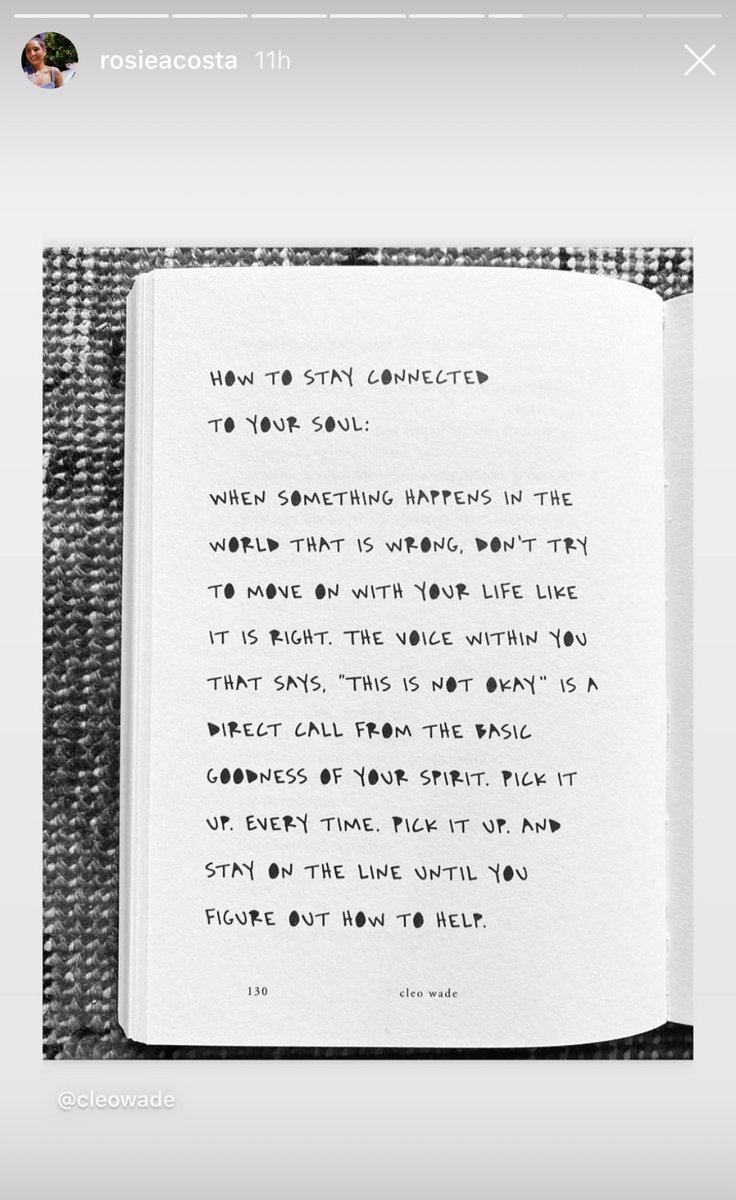 rosieacosta 11h
HOW TO STAY CONNECTED
TO YOUR SOUL:
WHEN SOMETHING HAPPENS IN THE
WORLD THAT IS WRONG, DON'T TRY
TO MOVE ON WITH YOUR LIFE LIKE
IT IS RIGHT. THE VOICE WITHIN YOU
THAT SAYS, "THIS IS NOT OKAY" IS A
DIRECT CALL FROM THE BASIC
GOODNESS OF YOUR SPIRIT. PICK IT
UP. EVERY TIME. PICK IT UP. AND
STAY ON THE LINE UNTIL YOU
FIGURE OUT HOW TO HELP.
130 cleo wade
@cleowade